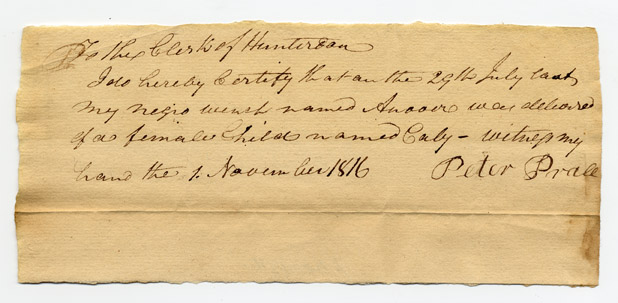 To the Clerk of Hunterdon
I do hereby Certify that on the 29th July last
my negro wench named was delivered
of a female Child named Caby – witness my
hand the 1. November 1816 Peter Prall